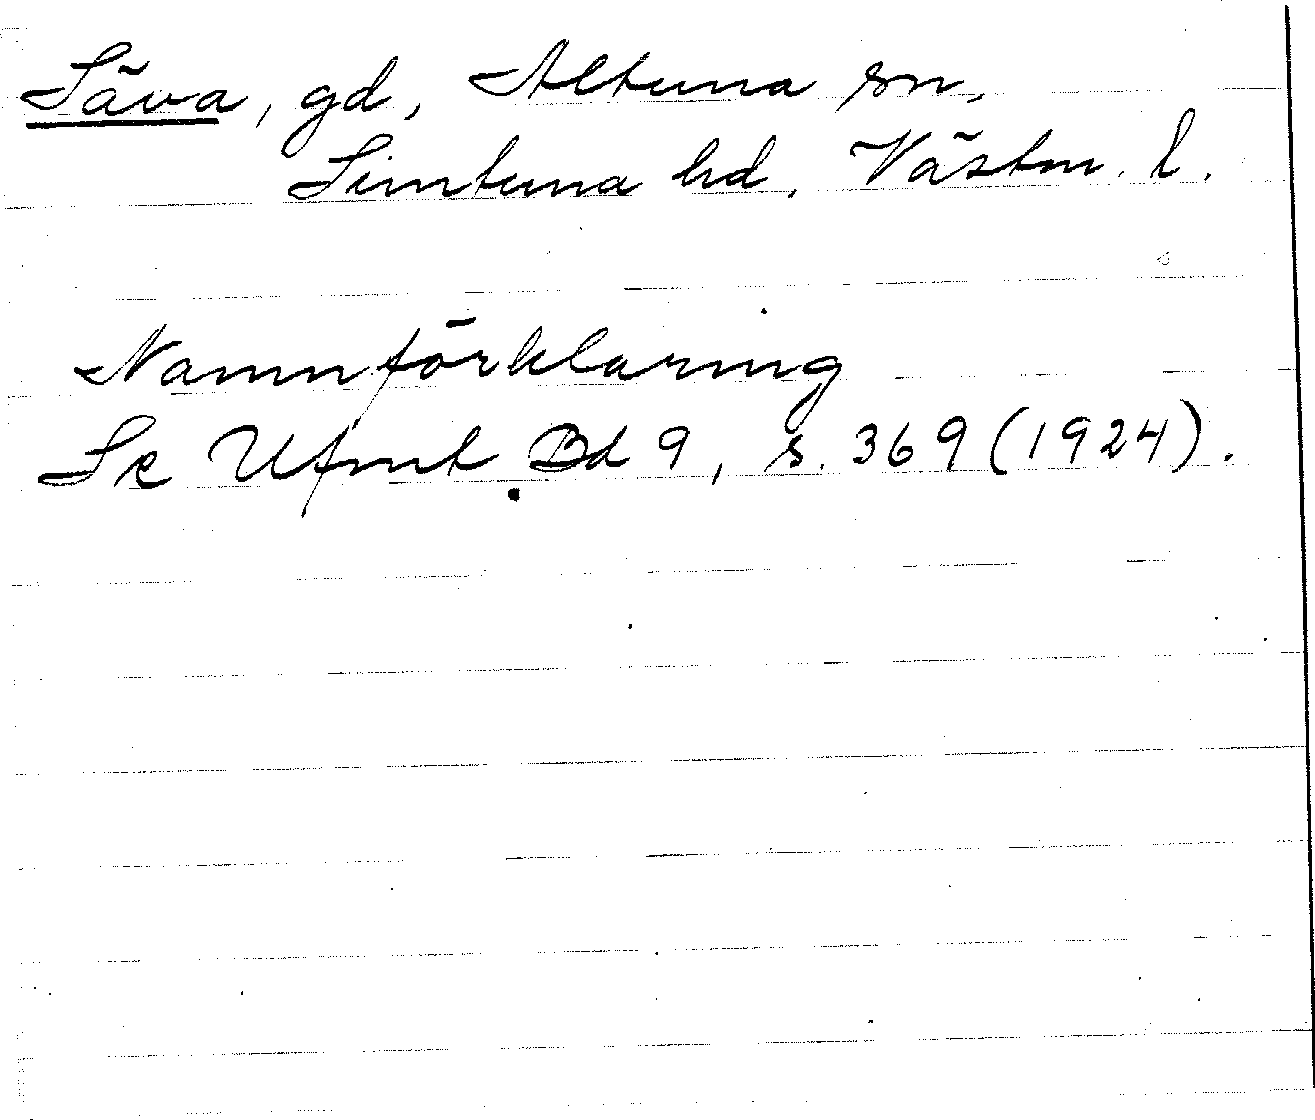 Säva, gd, Altuna sn,
Simtuna hd, Västm. l.
Namnförklaring
Se Ufmt Bd 9, s. 369 (1924).